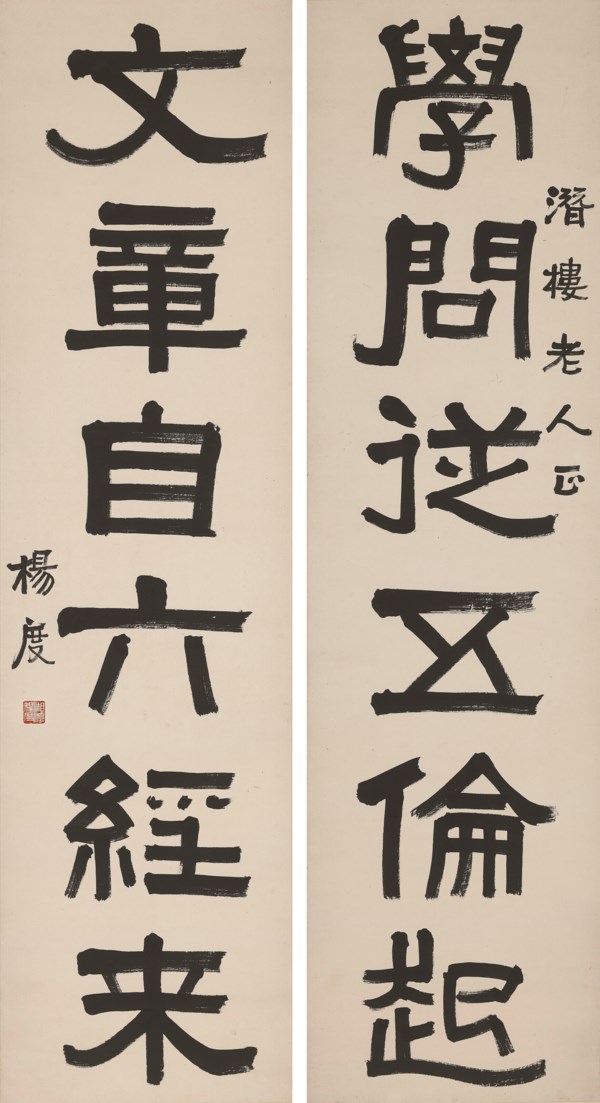 學問従五倫起
潛樓老人正
文章自六經来
楊度